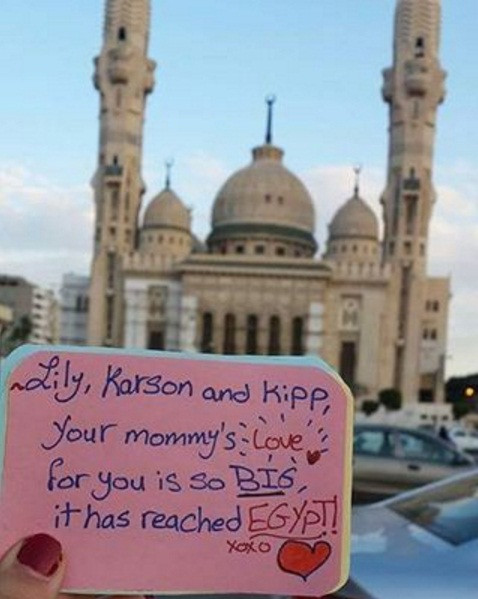 ~Lily, Karson and Kipp,
your mommy's Love
for you is so BIG,
it has reached EGYPT!
xoxo